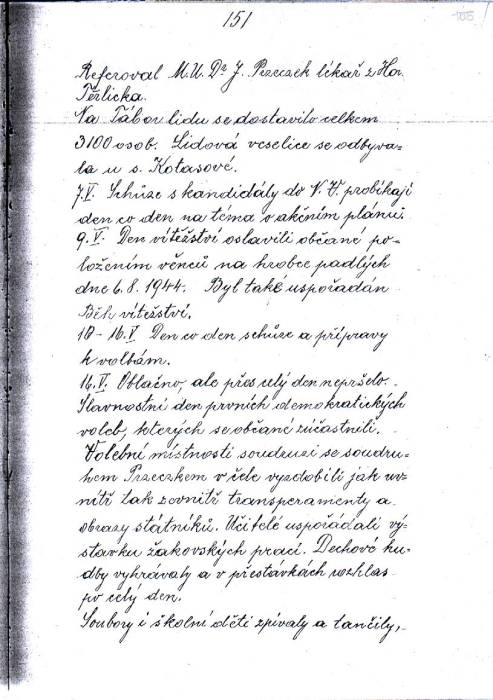 151
Referoval M.U. Dr J. Pszczek lékař z Hor.
Těrlicka.
Na Tábor lidu se dostavilo celkem
3100 osob. Lidová veselice se odbýva-
la u s. Kotasové.
7.V. Schůze s kandidály do N.V. probíhají
den co den na téma o akčním plánu.
9.V. Den vítěžství oslavili občané po-
ložením věnců na hrobce padlých
dne 6.8.1944. Byl také uspořádán
Běh vítežství.
10-16.V Den co den schůze a přípravy
k volbám.
16.V. Oblačno, ale přes celý den nepršelo.
Slavnostní den prvních demokratických
voleb, kterých se občané zúčastnili.
Volební místnosti soudruzi se soudru-
hem Przeczkem v čele vyzdobili jak uv-
nitř tak zovnitř transperamenty a
obrazy státníků. Učitelé uspořádali vý-
stavku žakovských prací. Dechové hu-
dby vyhrávaly a v přestávkách rozhlas
po celý den.
Soubory i školní děti zpívaly a tančily,